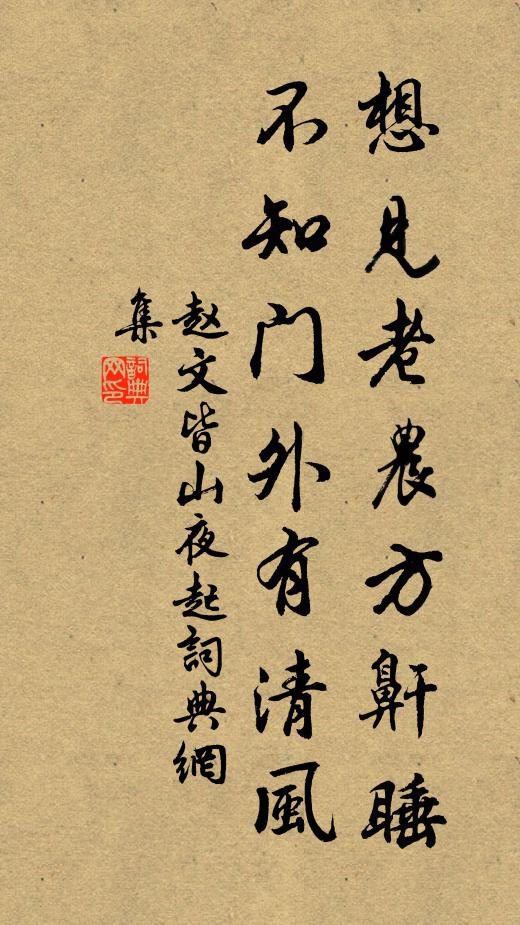 想見老農方鼾睡
不知門外有清風
赵文皆山夜起詞典網
集
詞典
网印